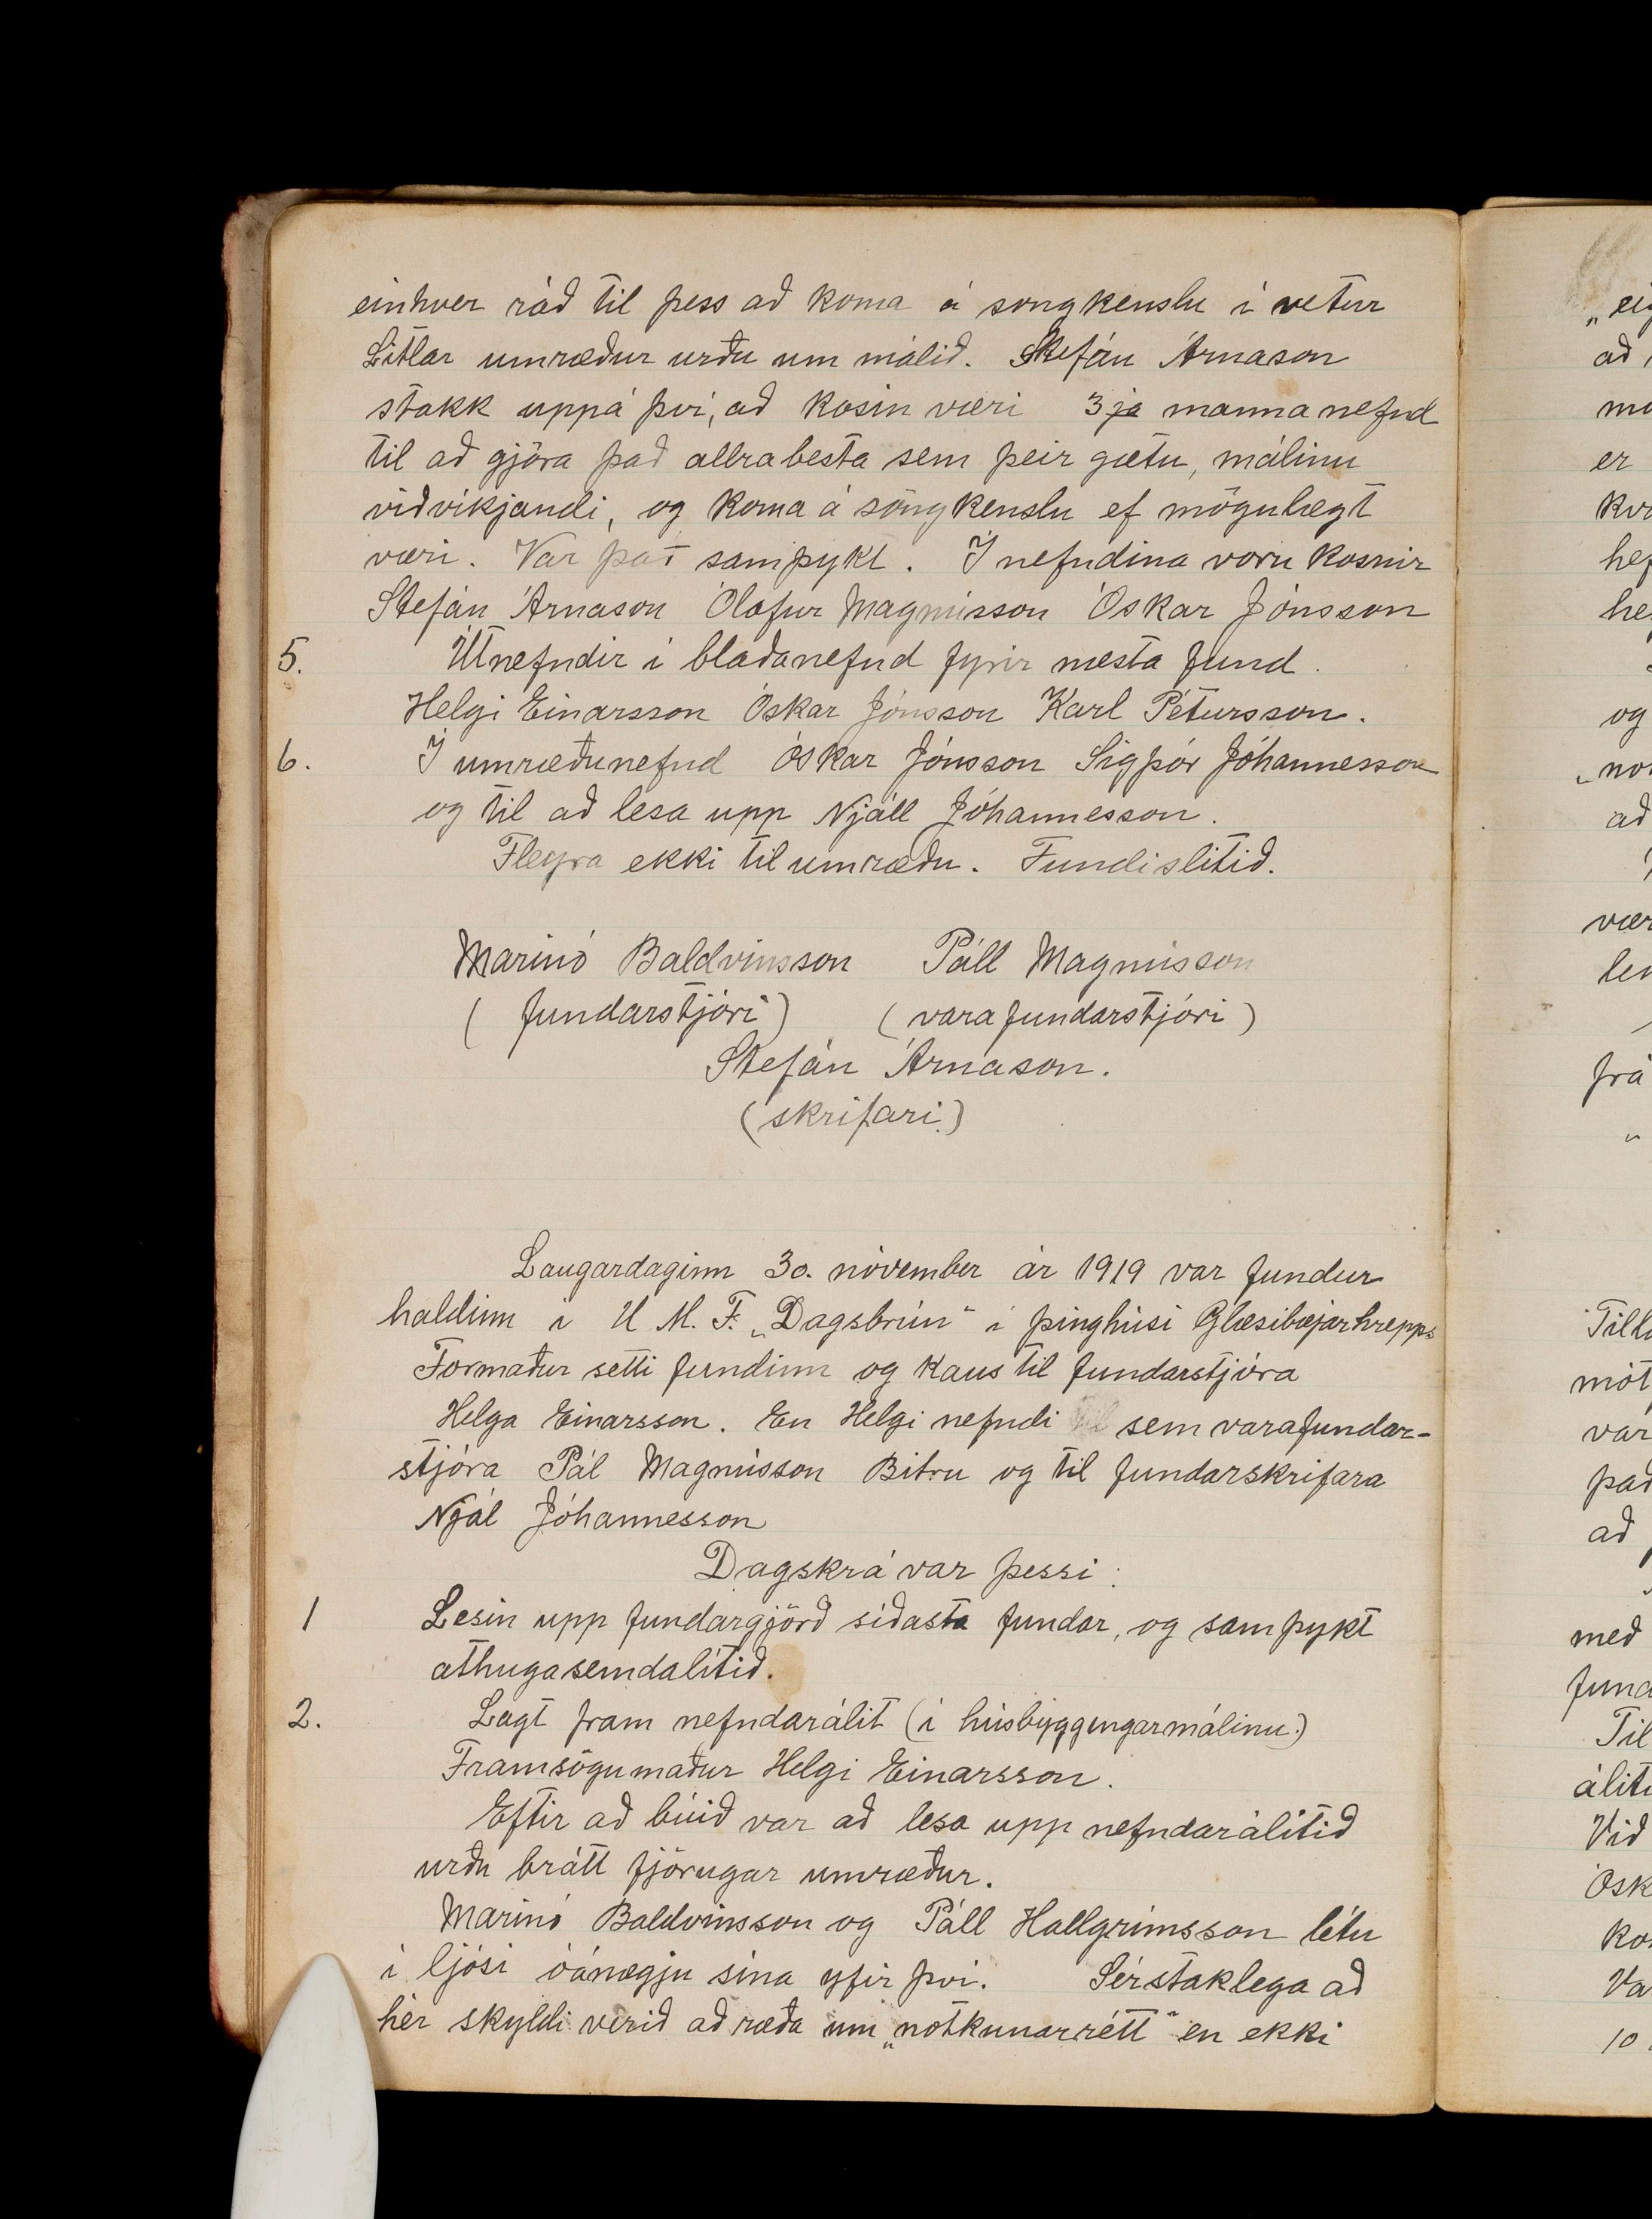 einhver ráð til þess að koma á songkenslu í vetur
Litlar umræður urðu um málið. Stefán Árnason
stakk uppá því, að kosin væri 3ja manna nefnd
til að gjöra það allrabesta sem þeir gætu, málinu
viðvíkjandi, og koma á söngkenslu ef mögulegt
væri. Var það samþykt. Í nefndina voru kosnir
Stefán Árnason Ólafur Magnússon Óskar Jónsson
5. Útnefndir í blaðanefnd fyrir næsta fund.
Helgi Einarsson Óskar Jónsson Karl Pétursson.
6. Í umræðunefnd Óskar Jónsson Sigþór Jóhannesson
og til að lesa upp Njáll Jóhannesson.
Fleyra ekki til umræðu. Fundislitið.
Marinó Baldvinsson Páll Magnússon
(fundarstjóri) (varafundarstjóri)
Stefán Árnason.
(skrifari.)
Laugardaginn 30. nóvember ár 1919 var fundur
haldinn í U. M. F. „Dagsbrún“ í þinghúsi Glæsibæjarhrepps
Formaður setti fundinn og kaus til fundarstjóra
Helga Einarsson. En Helgi nefndi sem varafundar-
stjóra Pál Magnússon Bitru og til fundarskrifara
Njál Jóhannesson
Dagskrá var þessi:
1 Lesin upp fundargjörð síðasta fundar, og samþykt
athugasemdalítið.
2. Lagt fram nefndarálit (í húsbyggingarmálinu.)
Framsögumaður Helgi Einarsson.
Eftir að búið var að lesa upp nefndarálitið
urðu brátt fjörugar umræður.
Marinó Baldvinsson og Páll Hallgrímsson létu
í ljósi óánægju sína yfir því. Sérstaklega að
hér skyldi verið að ræða um „notkunarrétt“ en ekki